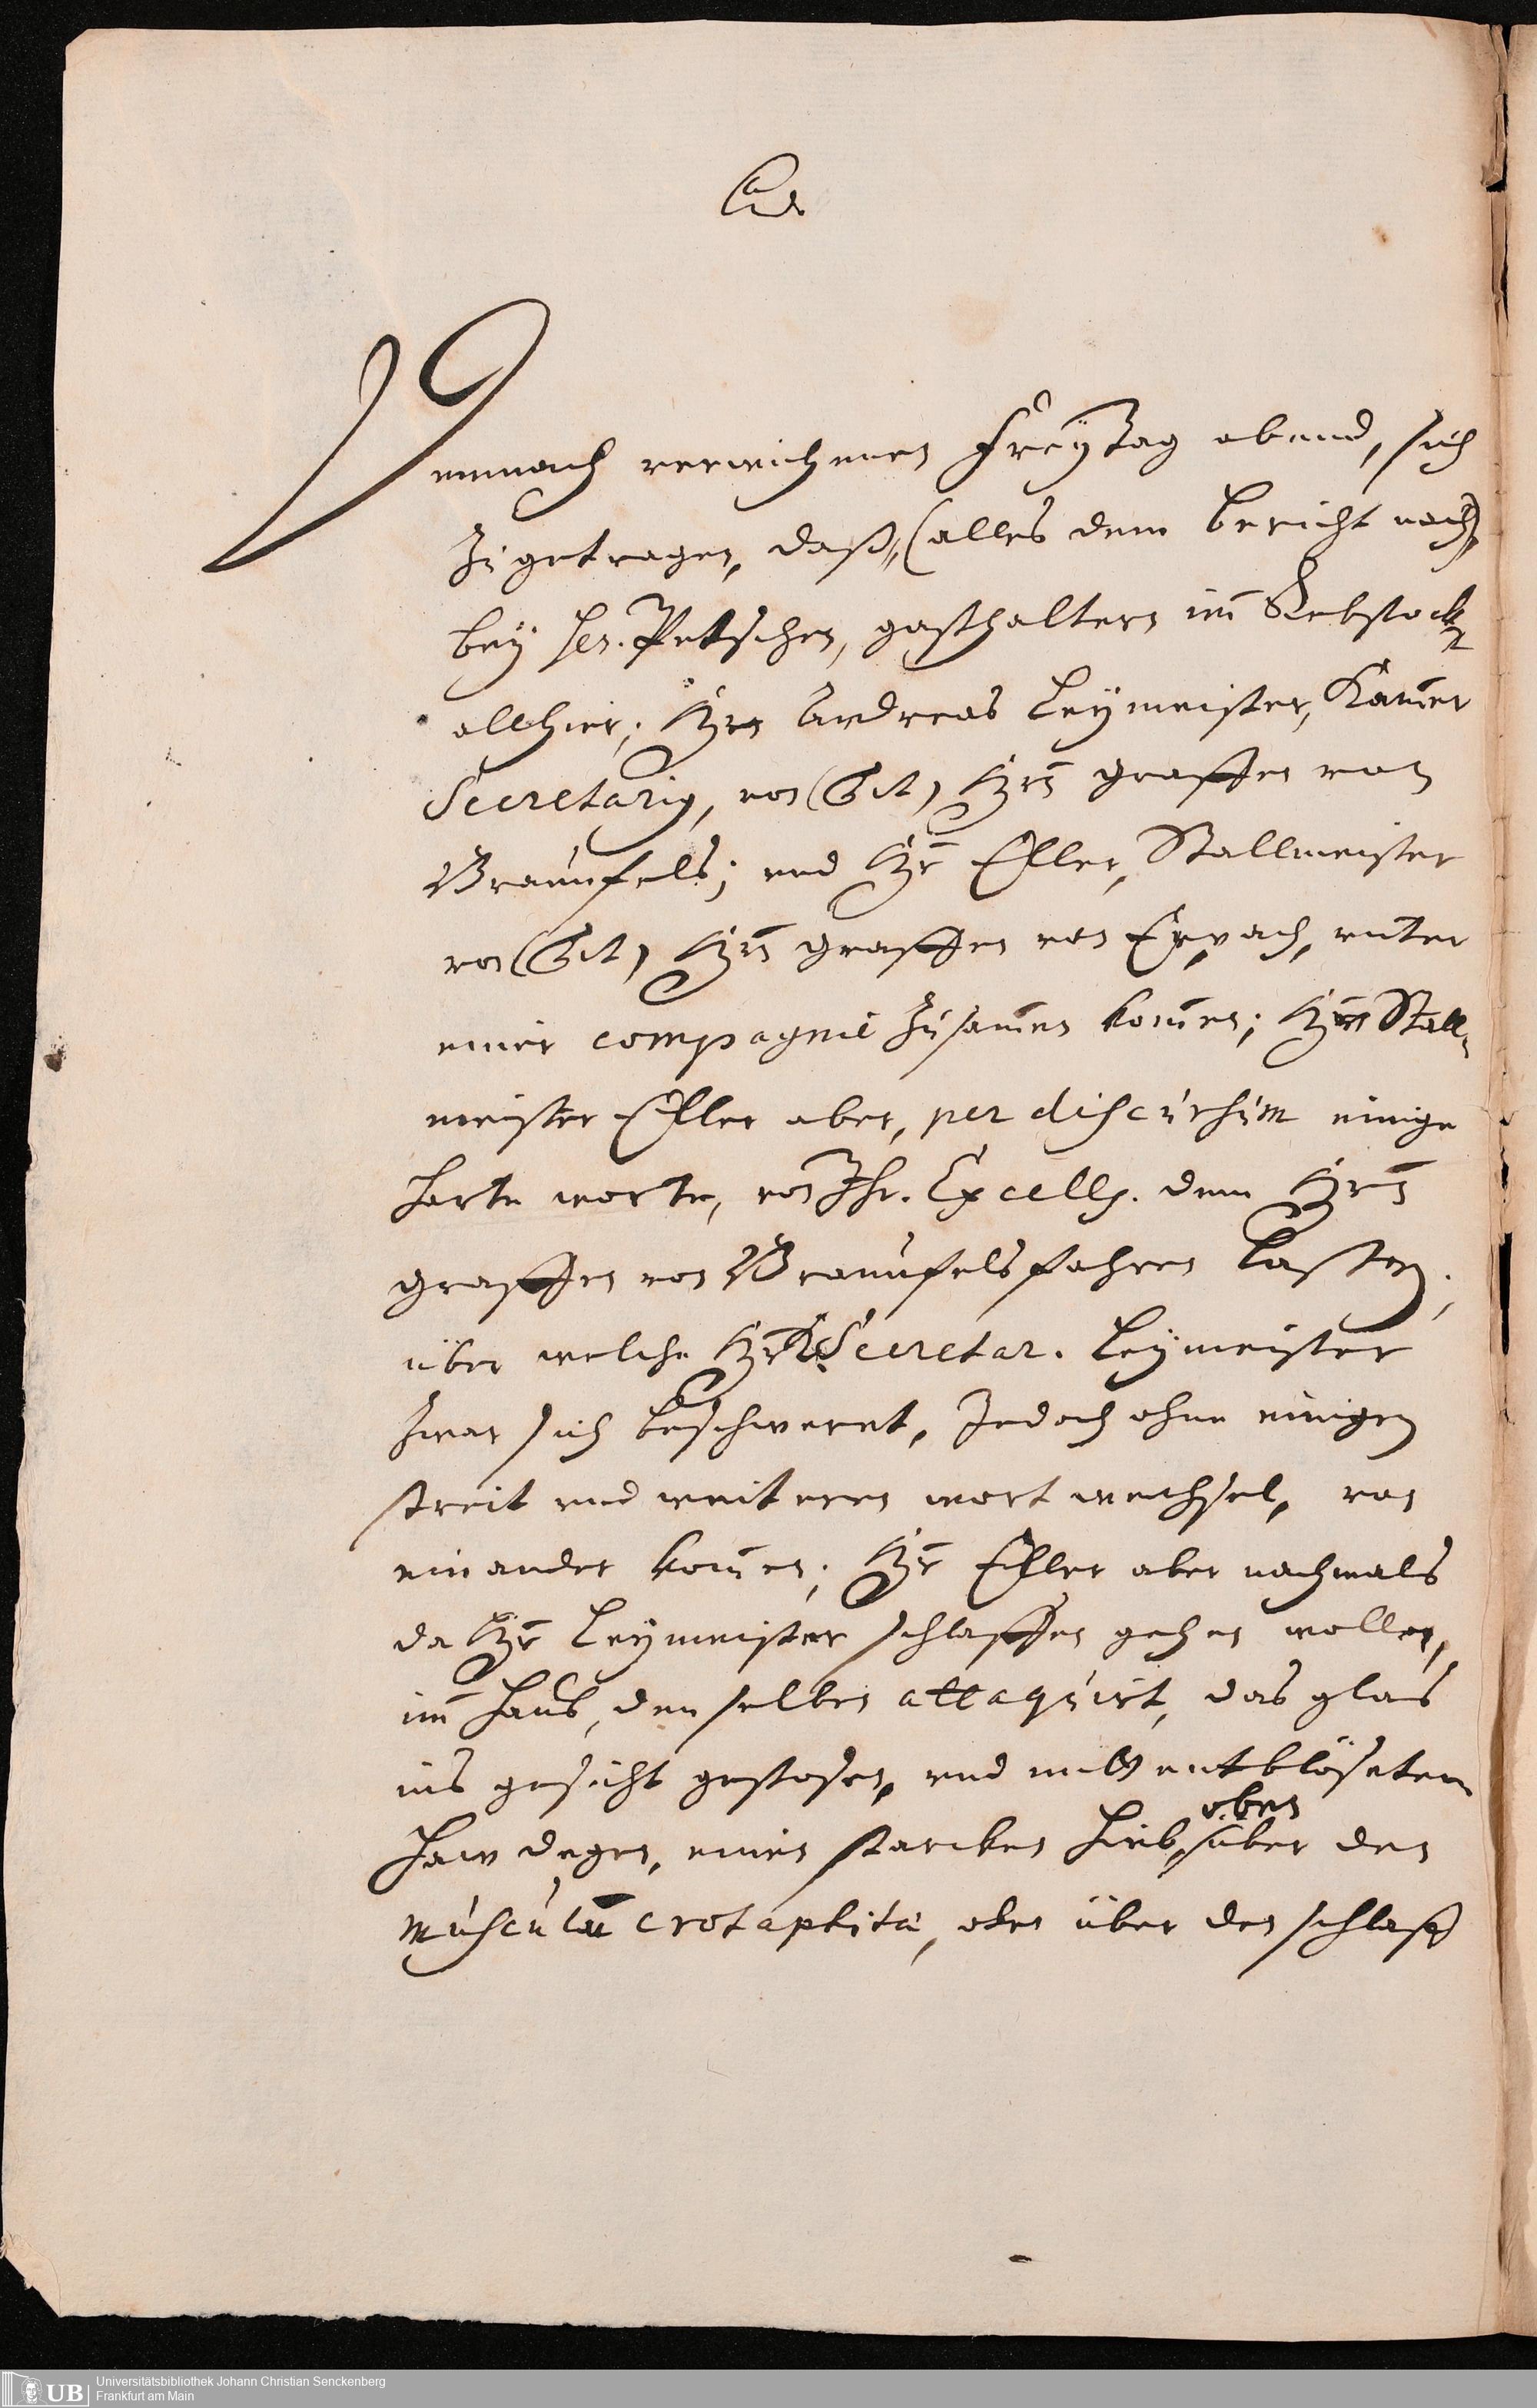 Demnach verwichenen Freÿtag abend, sich
zugetragen, daß, (alles dem bericht nach)
beÿ Hrn. Petschen, gasthaltern im Rebstock
allhier; Hrn Andreas Leÿmeister, Kam̄er
Secretariq, von (Tit) Hrn graffen von
Braunfels; vnd Hr Esller, Stallmeister
von (Tit) Hrn graffen von Erpach, vnter
einer compagnie zusam̄en kom̄en; Hrn Stall-
meister Esller aber, per discursum einige
harte worte, von Ihr. Excellz. dem Hrn
graffen von Braunfels fahren lassen;
über welche Hr Secretar. Leÿmeister
zwar sich beschweret, Jedoch ohne einigen
streit vnd weiteren wort wechsel, von
einander kom̄en; Hr Esller aber nachmals
da Hr Leÿmeister schlaffen gehen wollen,
im Hauß, denselben attaquirt, das glas
ins gesicht gestosen, vnd mitt entblösetem
Haw degen, einen starcken Hieb, oben über den
musculū crotaphitā, oben über den schlaff
Universitätsbibliothek Johann Christian Senckenberg
Frankfurt am Main
UB